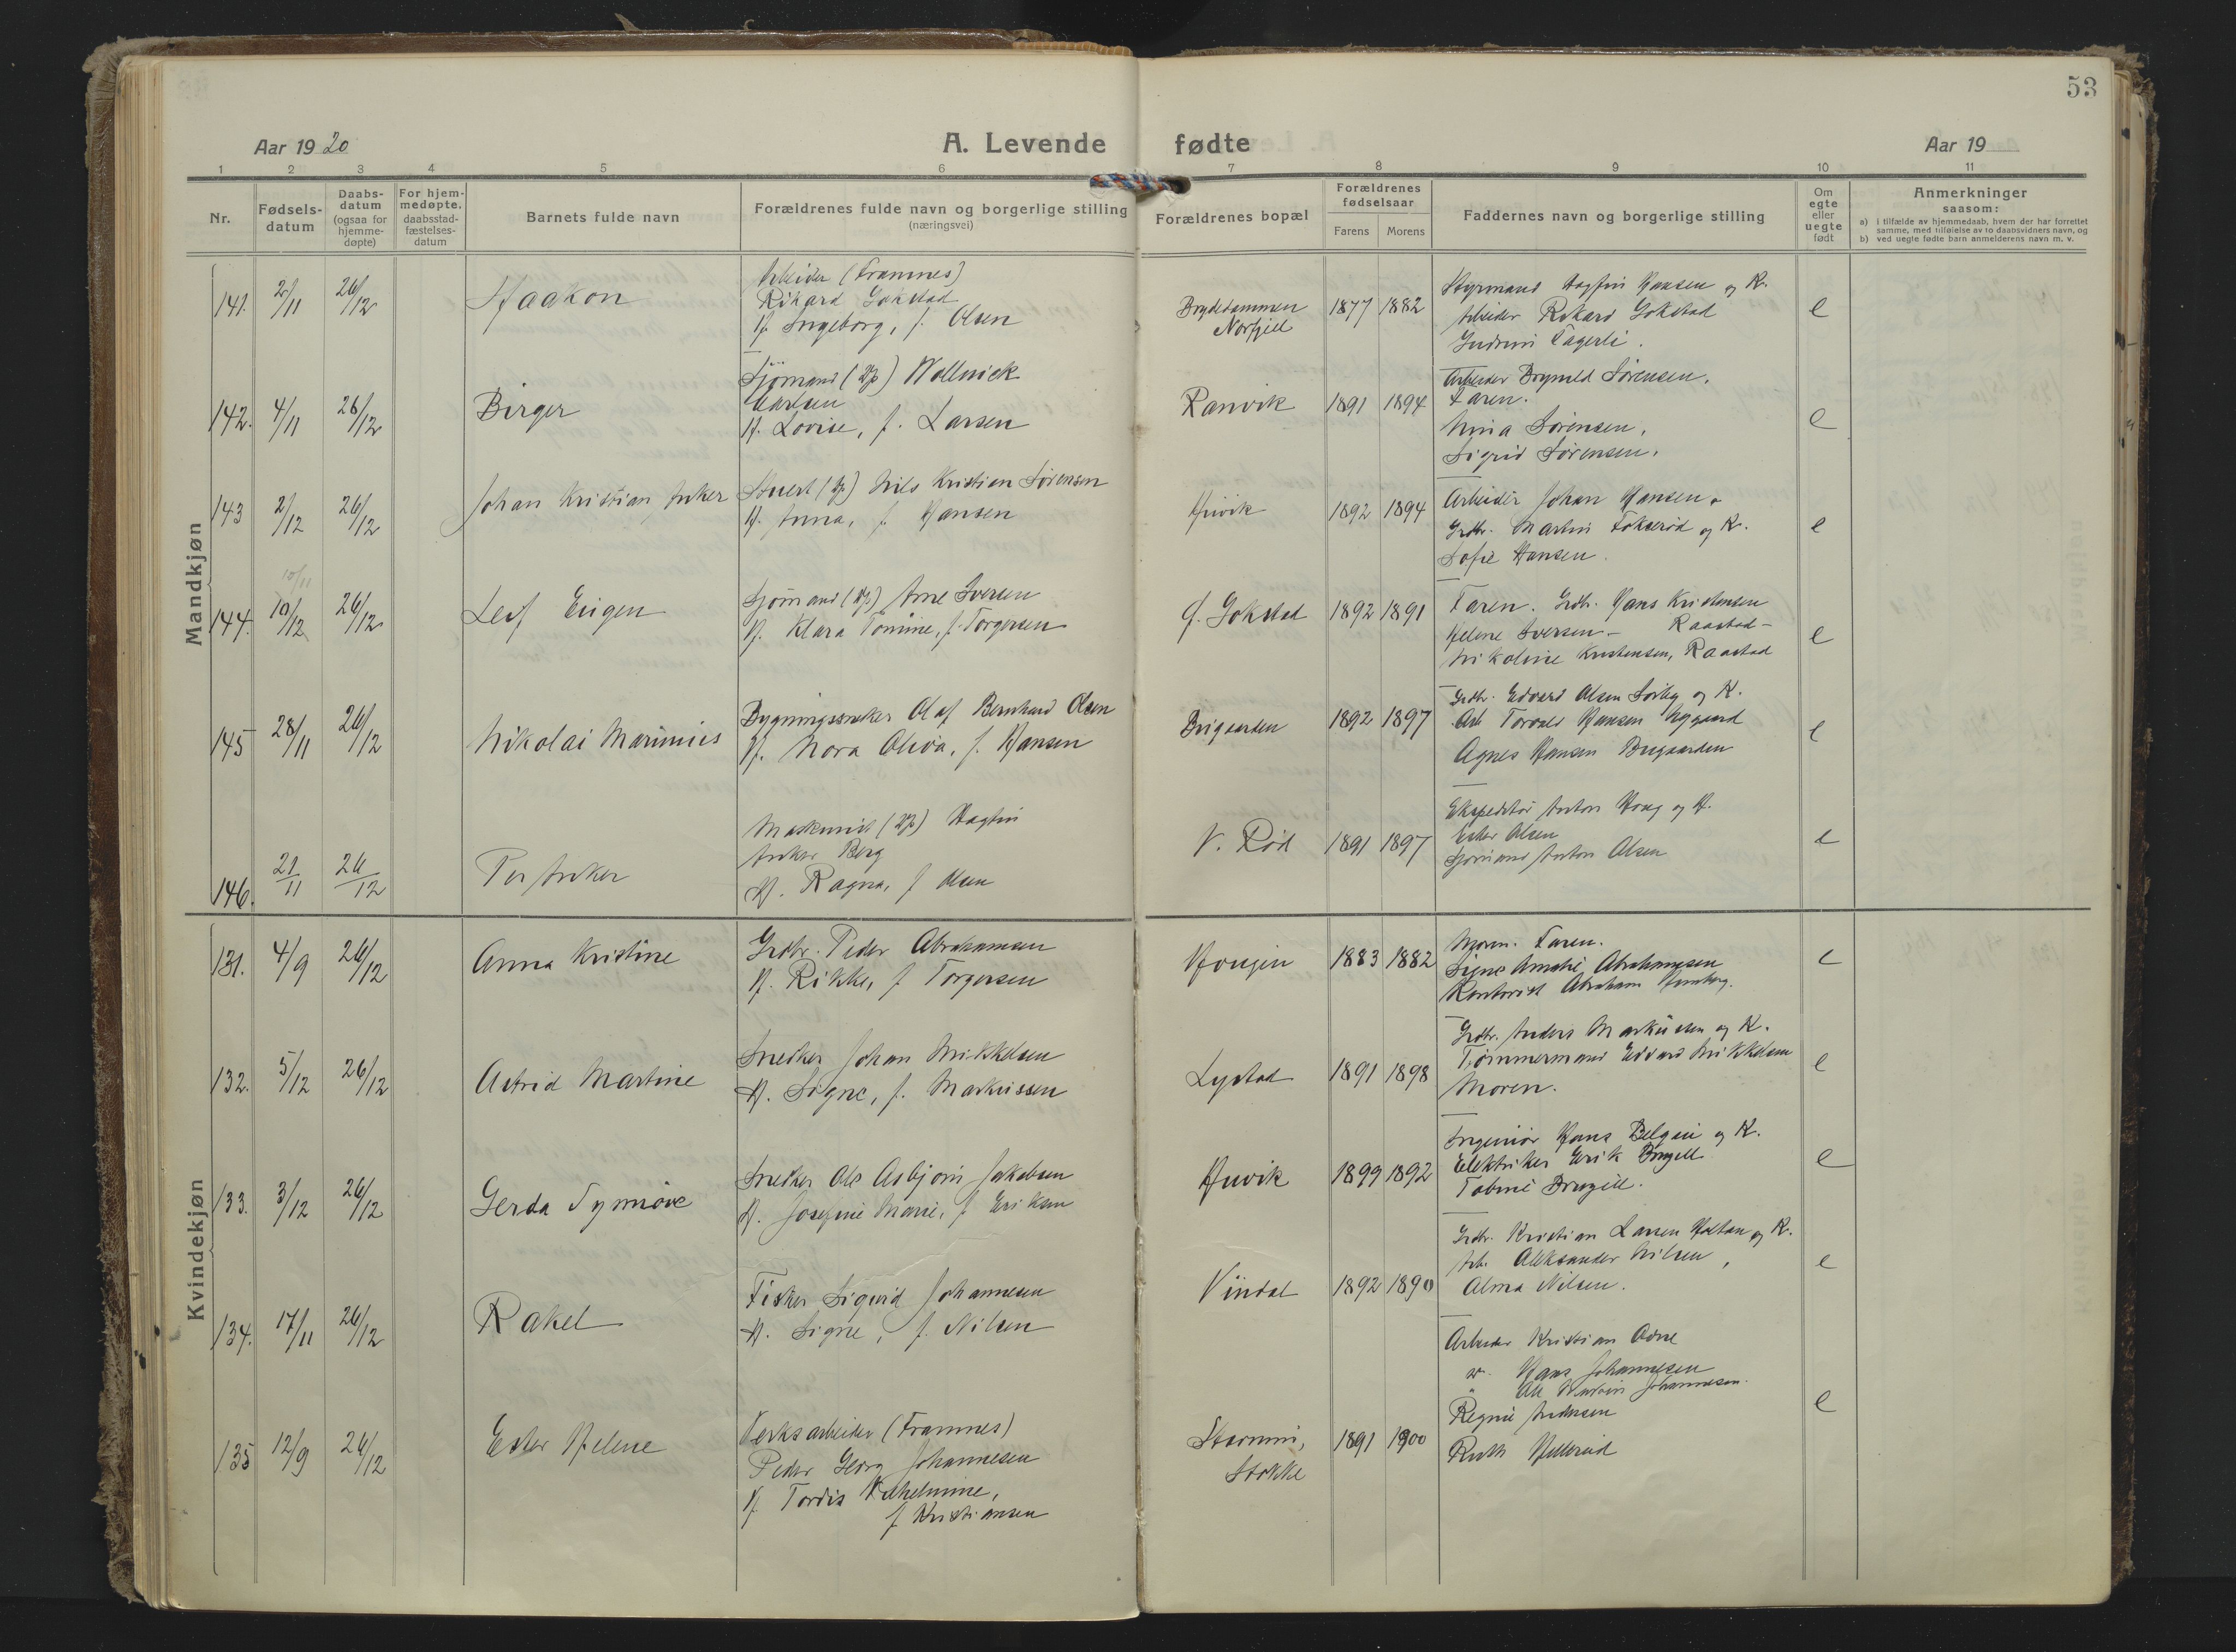 53
Aar 1920
A. Levende fødte
Aar 19
1 2 3 4 5 6 7 8 9 10 11
Nr.
Fødsels-
datum
Daabs-
datum
(ogsaa for
hjemme-
døpte)
For hjem-
medøpte.
daabsstad-
fæstelses-
datum
Barnets fulde navn
Forældrenes fulde navn og borgerlige stilling
(næringsvei)
Forældrenes bopæl
Forældrenes
fødselsaar
Farens Morens
Faddernes navn og borgerlige stilling
Om
egte
eller
uegte
født
Anmerkninger
saasom:
a) i tilfælde av hjemmedaab, hvem der har forrettet
samme, med tilføielse av to daabsvidners navn, og
b) ved uegte fødte barn anmelderens navn m. v.
Mandkjøn
141. 2/11 26/12 Haakon
Arbeider (Framnes)
Rikard Gokstad
H. Ingeborg, f. Olsen
Norfjell
1877 1882
Styrmand Dagfin Hansen og K.
Arbeider Rikard Gokstad
Gudrun Fagerli.
e
142. 4/11 26/12 Birger
Sjömand Wollnick
Carlsen
H. Lovise, f. Larsen
Ranvik 1891 1894
Arbeider Brynild Sörensen.
Faren.
Nina Sörensen.
Sigrid Sörensen.
e
143 2/12 26/12 Johan Kristian Anker
Stuert Nils Kristian Sörensen
H. Anna, f. Hansen
Huvik 1892 1894
Arbeider Johan Hansen
Grdbr. Martin Fokserød og K.
Sofie Hansen.
e
144. 10/11 10/12 26/12 Leif Eugen
Sjömand Arne Iversen
H. Klara Tomine, f. Torgersen
Gokstad 1892 1891
Faren. Grdbr. Hans Kristensen
Helene Iversen - Raastad -
Nikoline Kristensen, Raastad
e
145 28/11 26/12 Nikolai Marinius
Bygningssnekker Olaf Bernhard Olsen
H. Nora Olivia, f. Hansen
Brigaarden 1892 1897
Grdbr. Edvard Olsen Sörby og K.
Arb Torvald Hansen Nygaard
Agnes Hansen Brigaarden
e
146. 21/11 26/12 Per Anker
Maskinist Dagfin
Anker Berg
H. Ragna, f Olsen
V. Rød 1891 1897
Ekspeditör Anton Haug og H.
Ester Olsen
Sjömand Anton Olsen
e
Kvindekjøn
131. 4/9 26/12 Anna Kristine
Grdbr. Peder Abrahamsen
H. Rikke, f Torgersen
Haugen 1883 1882
Moren. Faren.
Signe Amalie Abrahamsen
Kontorist Abraham
e
132. 5/12 26/12 Astrid Martine
Snedker Johan Mikkelsen
H. Signe, f. Markussen
Lystad 1891 1898
Grdbr. Anders Markussen og K.
Tömmermand Edvard Mikkelsen
Moren.
e
133. 3/12 26/12 Gerda Synnöve
Snedker Ole Asbjörn Jakobsen
H. Josefine Marie, f Eriksen
Huvik 1899 1892
Ingeniör Hans Belgau og K.
Elektriker Erik Bryell
Tobine
e
134. 17/11 26/12 Rakel
Fisker Sigurd Johannesen
H. Signe, f. Nilsen
Vindal 1892 1890
Grdbr. Kristian Larsen Holtan og K.
Arb. Aleksander Nilsen,
Alma Nilsen.
e
135 12/9 26/12 Ester Helene
Verksarbeider (Framnes)
Peder Georg Johannesen
H. Tordis Vilhelmine,
f Kristiansen
Stokke
1891 1900
Arbeider Kristian Aune
" Hans Johannesen
" Ole Martin Johannesen.
Regine Andersen
Ruth
e